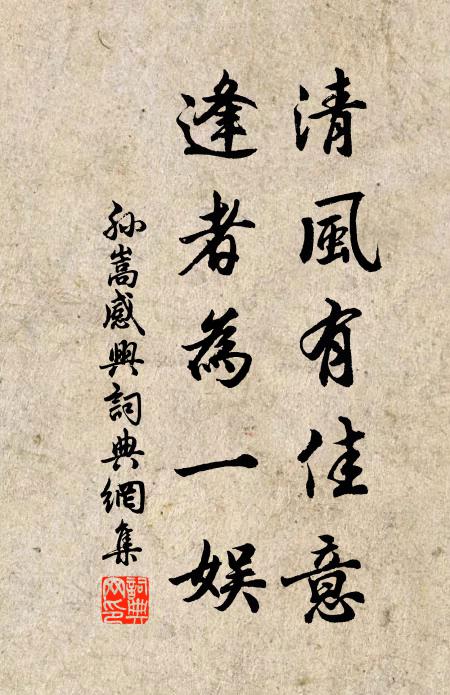 清風有佳意
逢者為一娱
孙嵩感興詞典網集
詞典